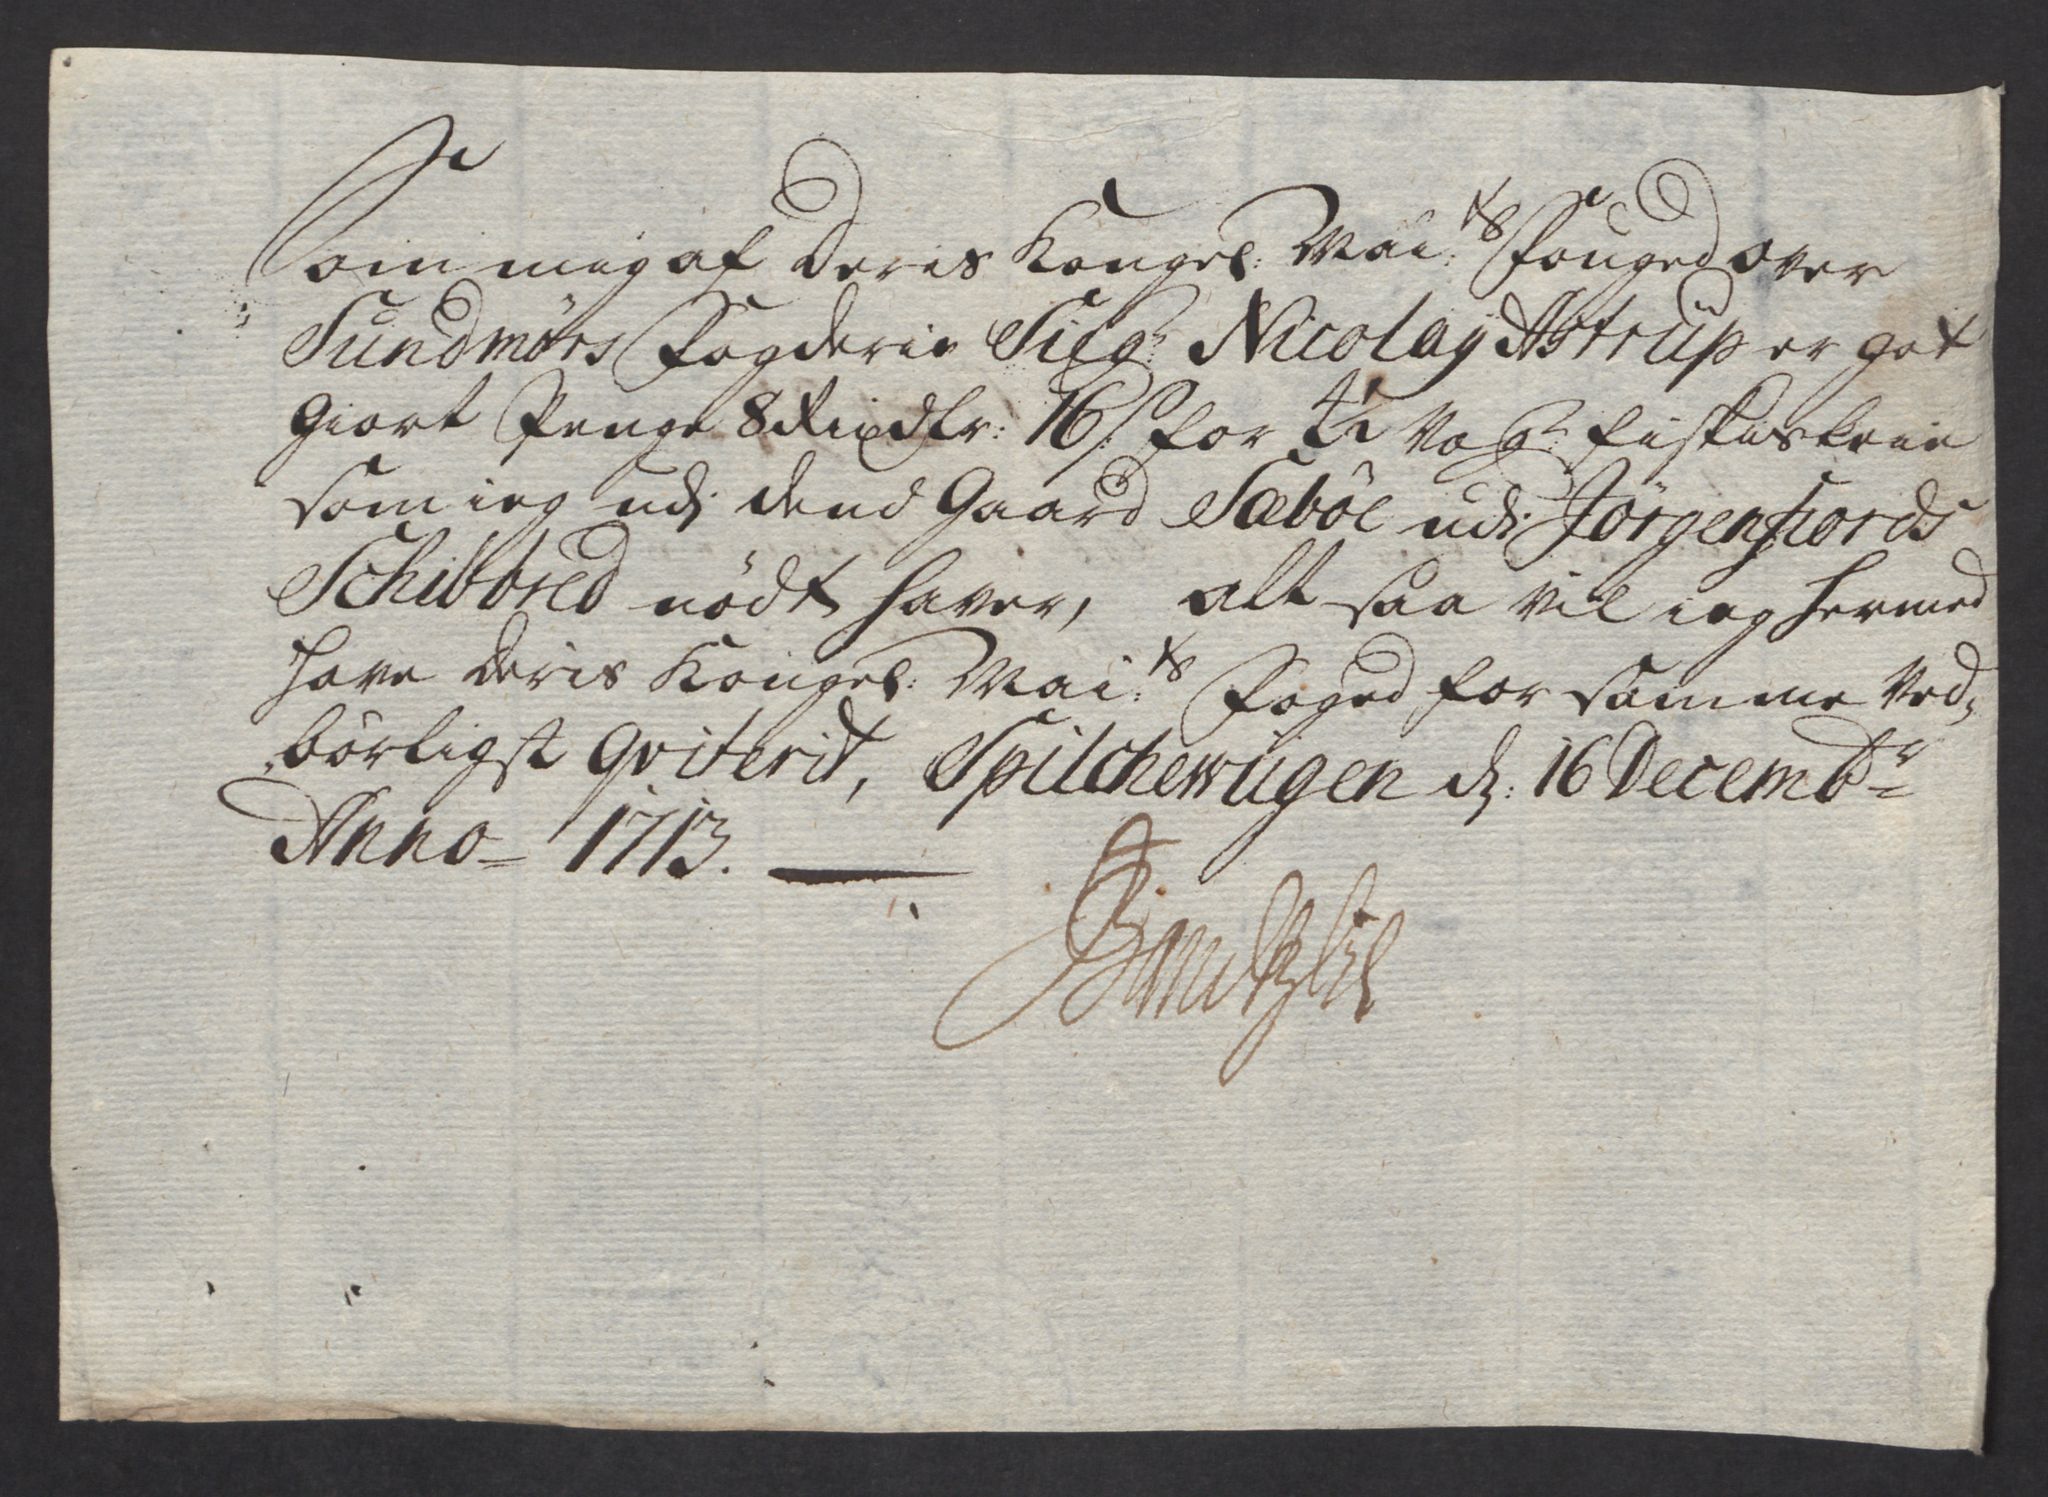 Som mig af Deris Kongel: Mai:ts Fouged over
Sundmörs Fogderie Sieg:r Nicolay Astrup er got
Giort Penge 8 Rixdlr: 16 s: for
som ieg udj dend Gaard Sæböe udj Jörgenfiords
Schibbred nödt haver, alt saa vil ieg hermed
have Deris Kongel: Mai:ts Foged for samme Ved,
börligst qviterit, Spilchewigen d: 16 Decembr
Anno 1713.